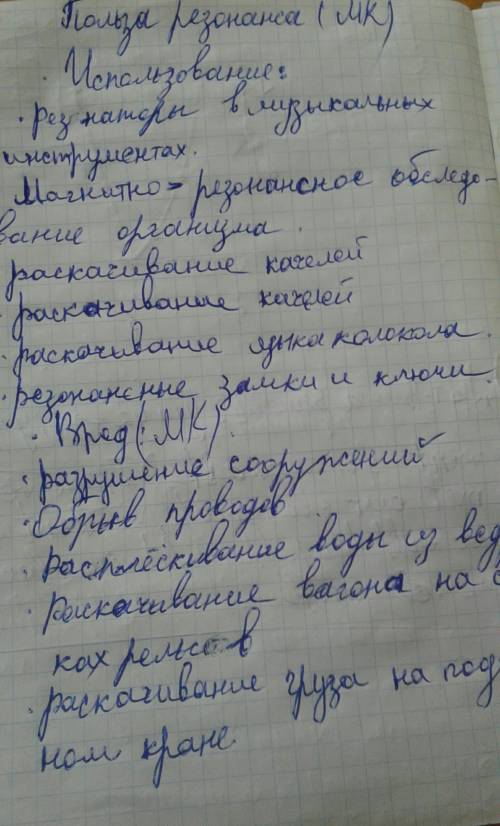 Польза резонанса (МК)
· Использование:
· резонаторы в музыкальных
инструментах.
Магнитно-резонансное обследо-
вание организма.
раскачивание качелей
· раскачивание качелей
· раскачивание языка колокола.
· резонансные замки и ключи.
· Вред (МК).
· разрушение сооружений
· Обрыв проводов
· Расплёскивание воды из вед
· Раскачивание вагона на с
ках рельсов
· раскачивание груза на под
ном кране.